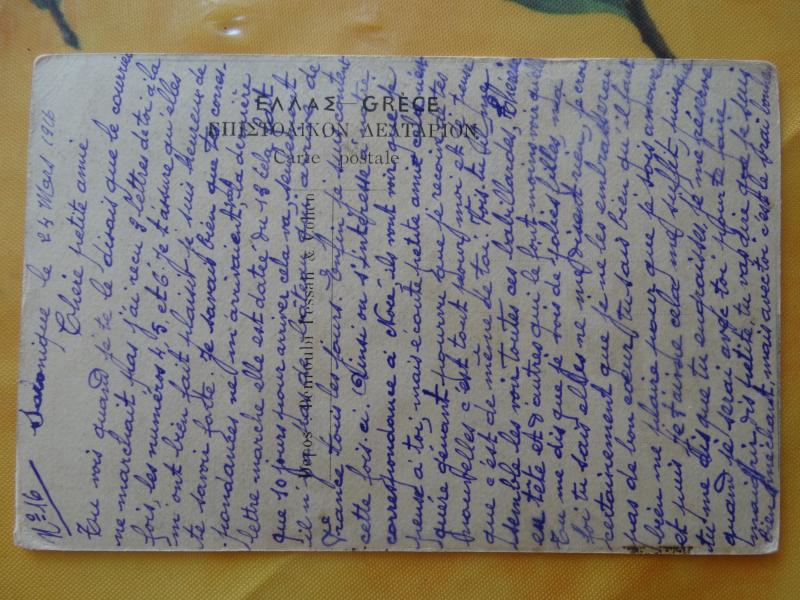 No 16
Salonique le 24 Mars 1916
Chère petite amie
Tu vois quand je te le disais que le courrier
ne marchait pas j'ai reçu 3 lettres de toi à la
fois, les numéros 4, 5, et 6. Je t'assure qu'elles
m'ont bien fait plaisir je suis heureux de
te savoir forte. Je savais bien que tes corres-
pondances ne m'arrivaient, la dernière
lettre marche elle est datée du 13 cela fait
que 10 jours pour arriver cela va, seulement
il n'y a pas de bateau qui arrive de
France tous les jours. Enfin je suis content
cette fois ci. Ainsi on s'intéresse à notre
correspondance à Noé ils vont voir que je
pense à toi, mais écoute petite amie cela n'est
guère gênant pourvu que je reçoive de tes
nouvelles c'est tout pour moi et je pense
que c'est de même de toi. Vois tu il me
semble les voir toutes ces babillardes,
en tête et d'autres qui le font
Tu me dis que je vois de jolies filles, ma
foi tu sais elles ne me disent rien, je crois
certainement que je ne les embrasserai
pas de bon coeur, tu sais bien qu'il faut
bien me plaire pour que je sois amoureux
et puis je t'aime cela me suffit, puisque
tu me dis que tu
quand je serai avec toi pour te faire
maigrir, dis petite, tu vas dire que je suis
bien méchant, mais avec toi c'est le vrai
ΕΛΛΑΣ - GRÈCE
ΕΠΙΣΤΟΛΙΚΟΝ ΔΕΛΤΑΡΙΟΝ
Carte postale